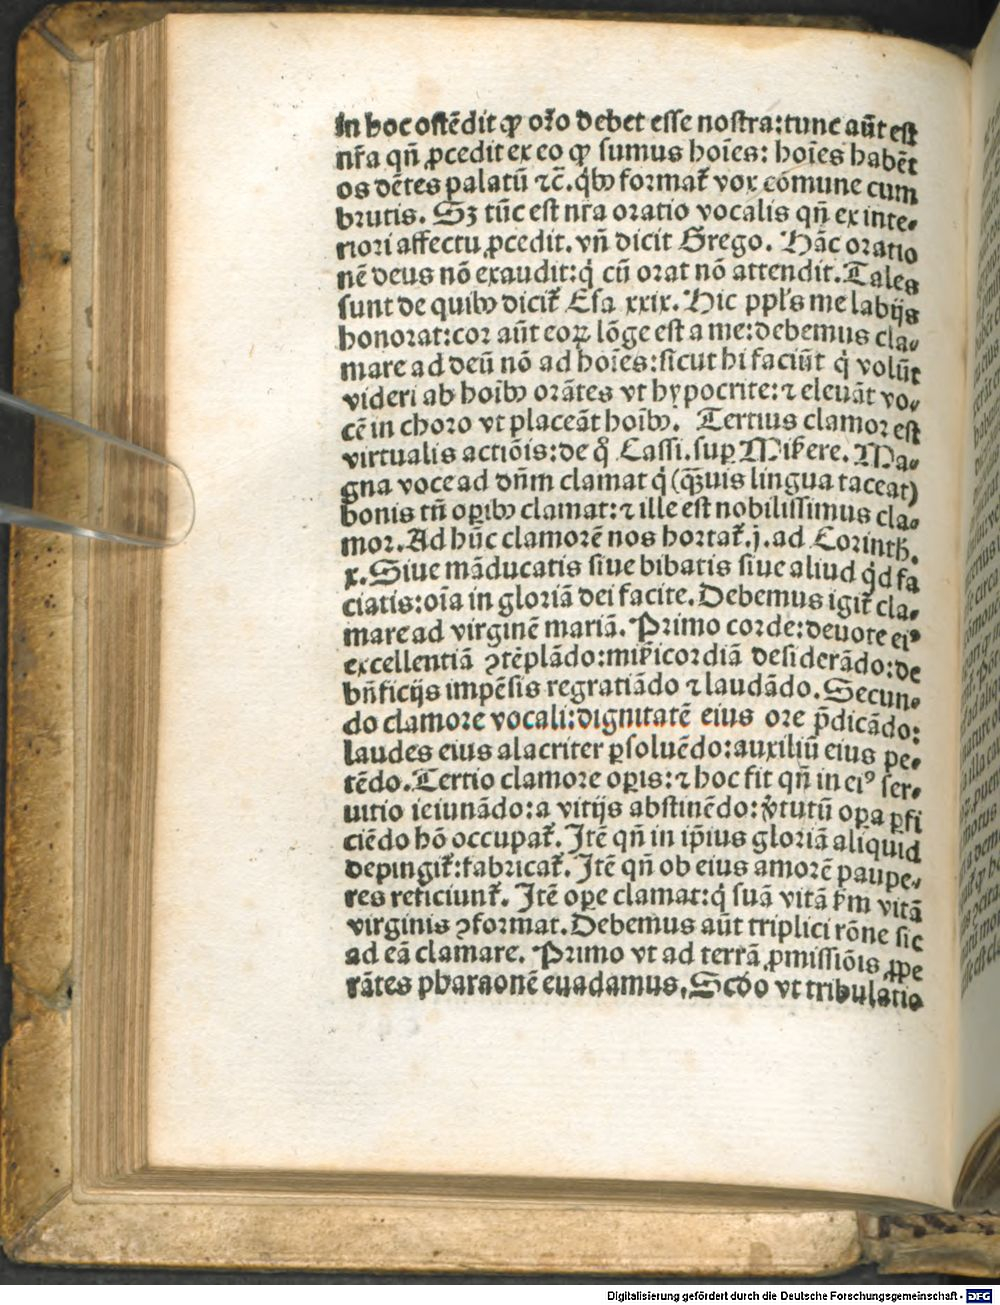 In hoc ostēdit ꝙ or̄o debet esse nostra: tunc aūt est
nr̄a qn̄ ꝓcedit ex eo ꝙ sumus hoīes: hoīes habēt
os dētes palatū ⁊c̄. qͥbꝰ formať vox cōmune cum
brutis. Sꝫ tūc est nr̄a oratio vocalis qn̄ ex inte⸗
riori affectu ꝓcedit. vn̄ dicit Grego. Hāc oratio
nē deus nō exaudit: qͥ cū orat nō attendit. Tales
sunt de quibꝰ diciť Esa xxix. Hic ppl's me labijs
honorat: cor aūt eoꝝ lōge est a me: debemus cla⸗
mare ad deū nō ad hoīes: sicut hi faciūt qͥ volūt
videri ab hoībꝰ orātes vt hypocrite: ⁊ eleuāt vo⸗
cē in choro vt placeāt hoībꝰ. Tertius clamor est
virtualis actiōis: de qͦ Cassi. suꝑ Mis̄ere. Ma⸗
gna voce ad dn̄m clamat qͥ (qꝫuis lingua taceat)
bonis tn̄ oꝑibꝰ clamat: ⁊ ille est nobilissimus cla⸗
mor. Ad hūc clamorē nos hortať. j. ad Corinth.
x. Siue māducatis siue bibatis siue aliud qͥd fa
ciatis: oīa in gloriā dei facite. Debemus igiť cla⸗
mare ad virginē mariā. Primo corde: deuote eiꝰ
excellentiā ꝯtēplādo: mis̄icordiā desiderādo: de
bn̄ficijs impēsis regratiādo ⁊ laudādo. Secun⸗
do clamore vocali: dignitatē eius ore p̄dicādo:
laudes eius alacriter ꝑsoluēdo: auxiliū eius pe⸗
tēdo. Tertio clamore oꝑis: ⁊ hoc fit qn̄ in eiꝰ ser⸗
uitio ieiunādo: a vitijs abstinēdo: v̓tutū oꝑa ꝑfi
ciēdo hō occupať. Itē qn̄ in ip̄ius gloriā aliquid
depingiť: fabricať. Itē qn̄ ob eius amorē paupe⸗
res reficiunť. Itē oꝑe clamat: qͥ suā vitā s̄m vitā
virginis ꝯformat. Debemus aūt triplici rōne sic
ad eā clamare. Primo vt ad terrā ꝓmissiōis ꝓpe
rātes pharaonē euadamus. Scd̄o vt tribulatio
Digitalisierung gefördert durch die Deutsche Forschungsgemeinschaft - DFG